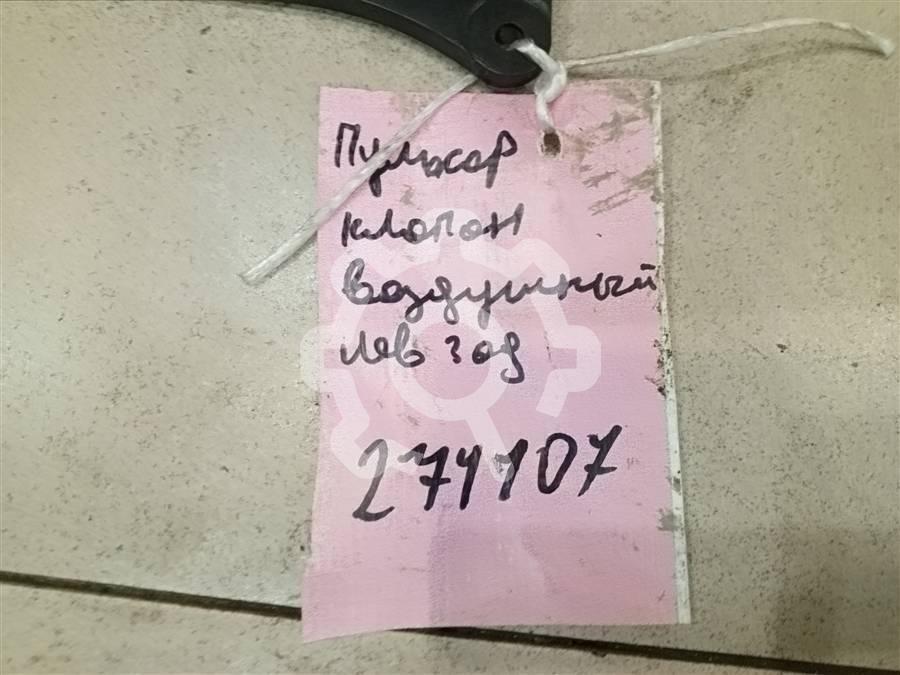 Пульсар
клапан
воздушный
лев зад
271107